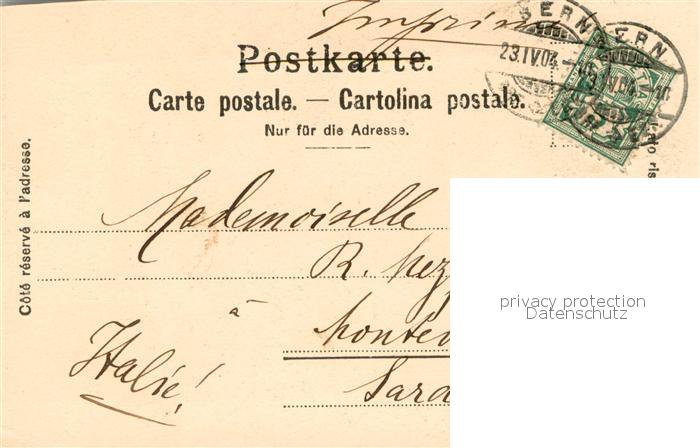 Imprimé
BERN
23.IV.04.
BERN
Postkarte.
Carte postale. — Cartolina postale.
Nur für die Adresse.
Côté réservé à l'adresse.
Mademoiselle
R. Mez
à
Monte
Italie!
Sard
privacy protection
Datenschutz